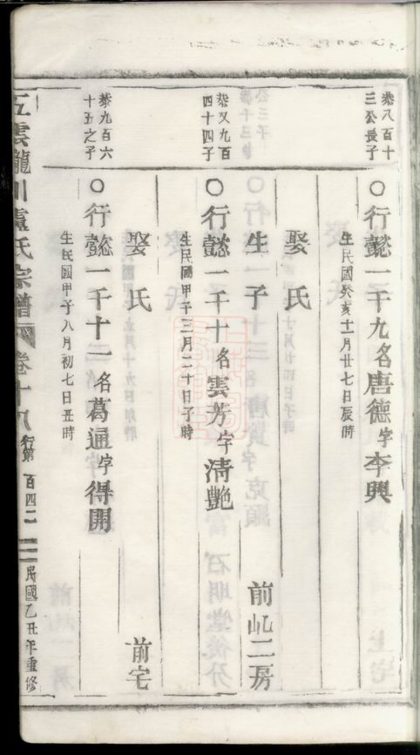 恭八百十
三公長子
○行懿一千九名唐德字李興
生民國癸亥十一月廿七日辰時
娶氏
生子
前屺二房
恭又九百
四十四子
○行懿一千十名雲芳字清艷
生民國甲子三月二十日子時
娶氏
前宅
恭九百六
十五之子
○行懿一千十一名葛通字得開
生民國甲子八月初七日丑時
五雲龍川盧氏宗譜 卷十八 行第 百四二 民國乙丑年重修